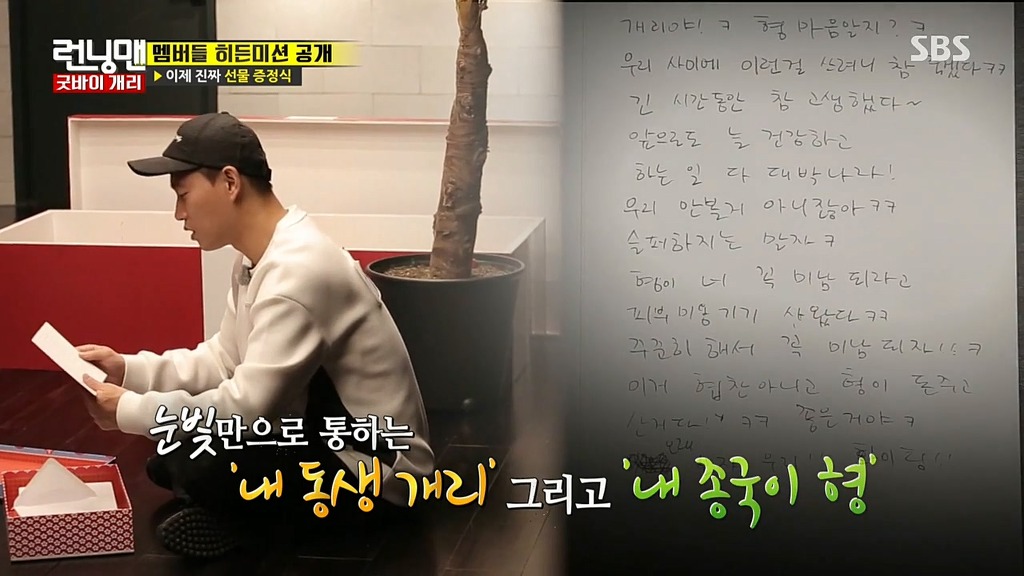 런닝맨
굿바이 개리
멤버들 히든미션 공개
▶ 이제 진짜 선물 증정식
SBS
개리야! ㅋ 형 마음알지? ㅋ
우리 사이에 이런걸 쓰려니 참
긴 시간동안 참 고생했다~
앞으로도 늘 건강하고
하는 일 다 대박나라!
우리 안볼거 아니잖아 ㅋㅋ
슬퍼하지는 말자 ㅋ
형이 너 꼭 미남 되라고
피부 미용기기 사왔다 ㅋㅋ
꾸준히 해서 꼭 미남 되자!! ㅋ
이거 협찬아니고 형이 돈주고
산거다! ㅋㅋ 좋은거야 ㅋ
화이팅!!
눈빛만으로 통하는
'내 동생 개리' 그리고 '내 종국이 형'